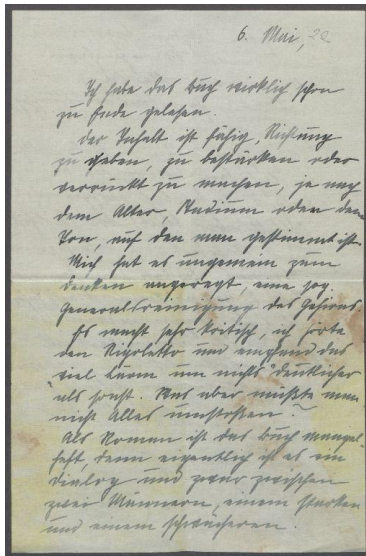 6. Mai, 20
Ich habe das Buch wirklich schon
zu Ende gelesen.
Der Inhalt ist fähig, Richtung
zu geben, zu bestärken oder
verrückt zu machen, je nach
dem Alter, Stadium oder dem
Ton, auf den man gestimmt ist.
Mich hat es ungemein zum
Denken angeregt, eine sog.
Generalsreinigung des Gehirns.
Es macht sehr kritisch, ich hörte
den Rigoletto und empfand das
"viel Lärm um nichts" deutlicher
als sonst. Was aber müßte man
nicht Alles umstoßen?
Als Roman ist das Buch mangel-
haft denn eigentlich ist es ein
Dialog und zwar zwischen
zwei Männern, einem starken
und einem schwächeren.